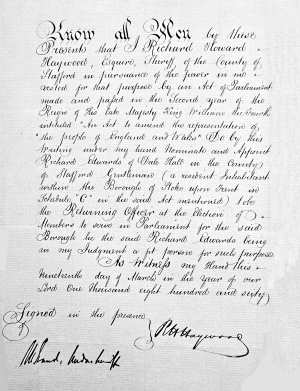 Know all Men by these
Presents that I Richard Howard
Haywood, Esquire, Sheriff of the County of
Stafford in pursuance of the power in me
vested for that purpose by an Act of Parliament
made and passed in the Second year of the
Reign of His late Majesty King William the Fourth
intituled "An Act to amend the representation of
the people of England and Wales" Do by this
Writing under my hand Nominate and Appoint
Richard Edwards of Dale Hall in the County
of Stafford Gentleman (a resident Inhabitant
within the Borough of Stoke upon Trent in
Schedule "C" in the said Act mentioned) to be
the Returning Officer at the Election of
Members to serve in Parliament for the said
Borough he the said Richard Edwards being
in my Judgment a fit person for such purpose
As Witness my Hand this
nineteenth day of March in the year of our
Lord One thousand eight hundred and sixty
Signed in the presence
of
R H Haywood